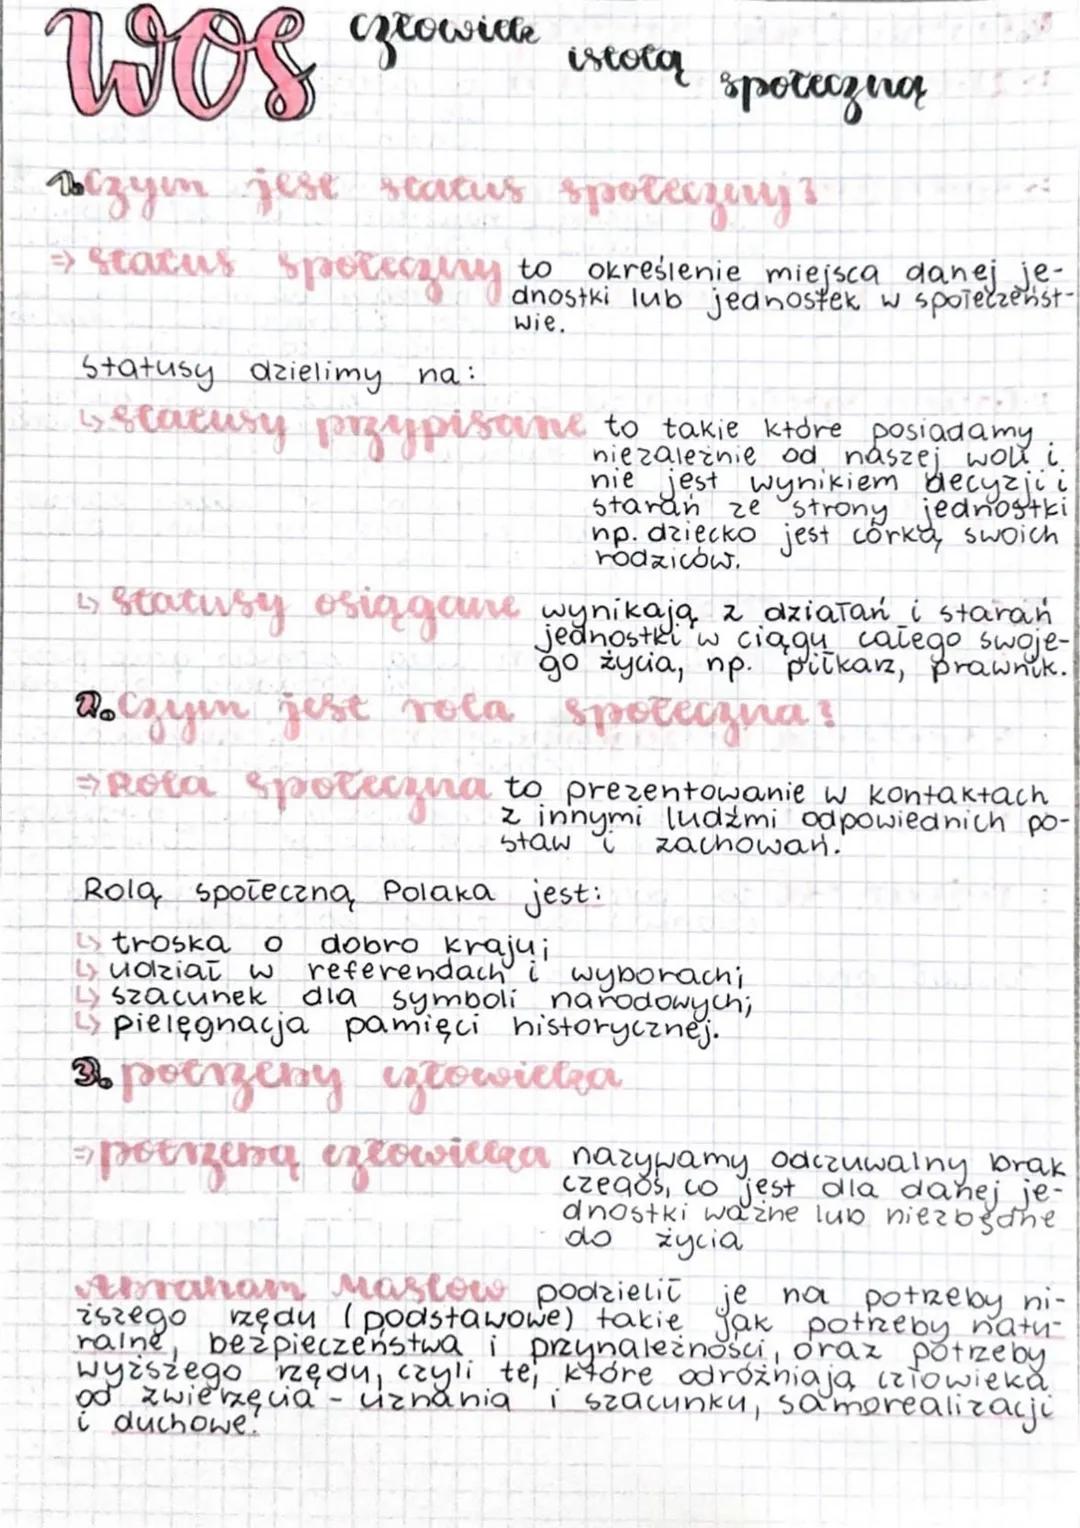 WOS człowiek istotą społeczną
1. Czym jest status społeczny?
⇒ status społeczny to określenie miejsca danej je-
dnostki lub jednostek w społeczeńst-
wie.
Statusy dzielimy na:
↳ statusy przypisane to takie które posiadamy
niezależnie od naszej woli i
nie jest wynikiem decyzji i
starań ze strony jednostki
np. dziecko jest córką swoich
rodziców.
↳ statusy osiągane wynikają z działań i starań
jednostki w ciągu całego swoje-
go życia, np. piłkarz, prawnik.
2. Czym jest rola społeczna?
⇒ Rola społeczna to prezentowanie w kontaktach
z innymi ludźmi odpowiednich po-
staw i zachowań.
Rolą społeczną Polaka jest:
↳ troska o dobro kraju;
↳ udział w referendach i wyborach;
↳ szacunek dla symboli narodowych;
↳ pielęgnacja pamięci historycznej.
3. potrzeby człowieka
⇒ potrzebą człowieka nazywamy odczuwalny brak
czegoś, co jest dla danej je-
dnostki ważne lub niezbędne
do życia
Abraham Masłow podzielił je na potrzeby ni-
ższego rzędu (podstawowe) takie jak potrzeby natu-
ralne, bezpieczeństwa i przynależności, oraz potrzeby
wyższego rzędu, czyli te, które odróżniają człowieka
od zwierzęcia - uznania i szacunku, samorealizacji
i duchowe.